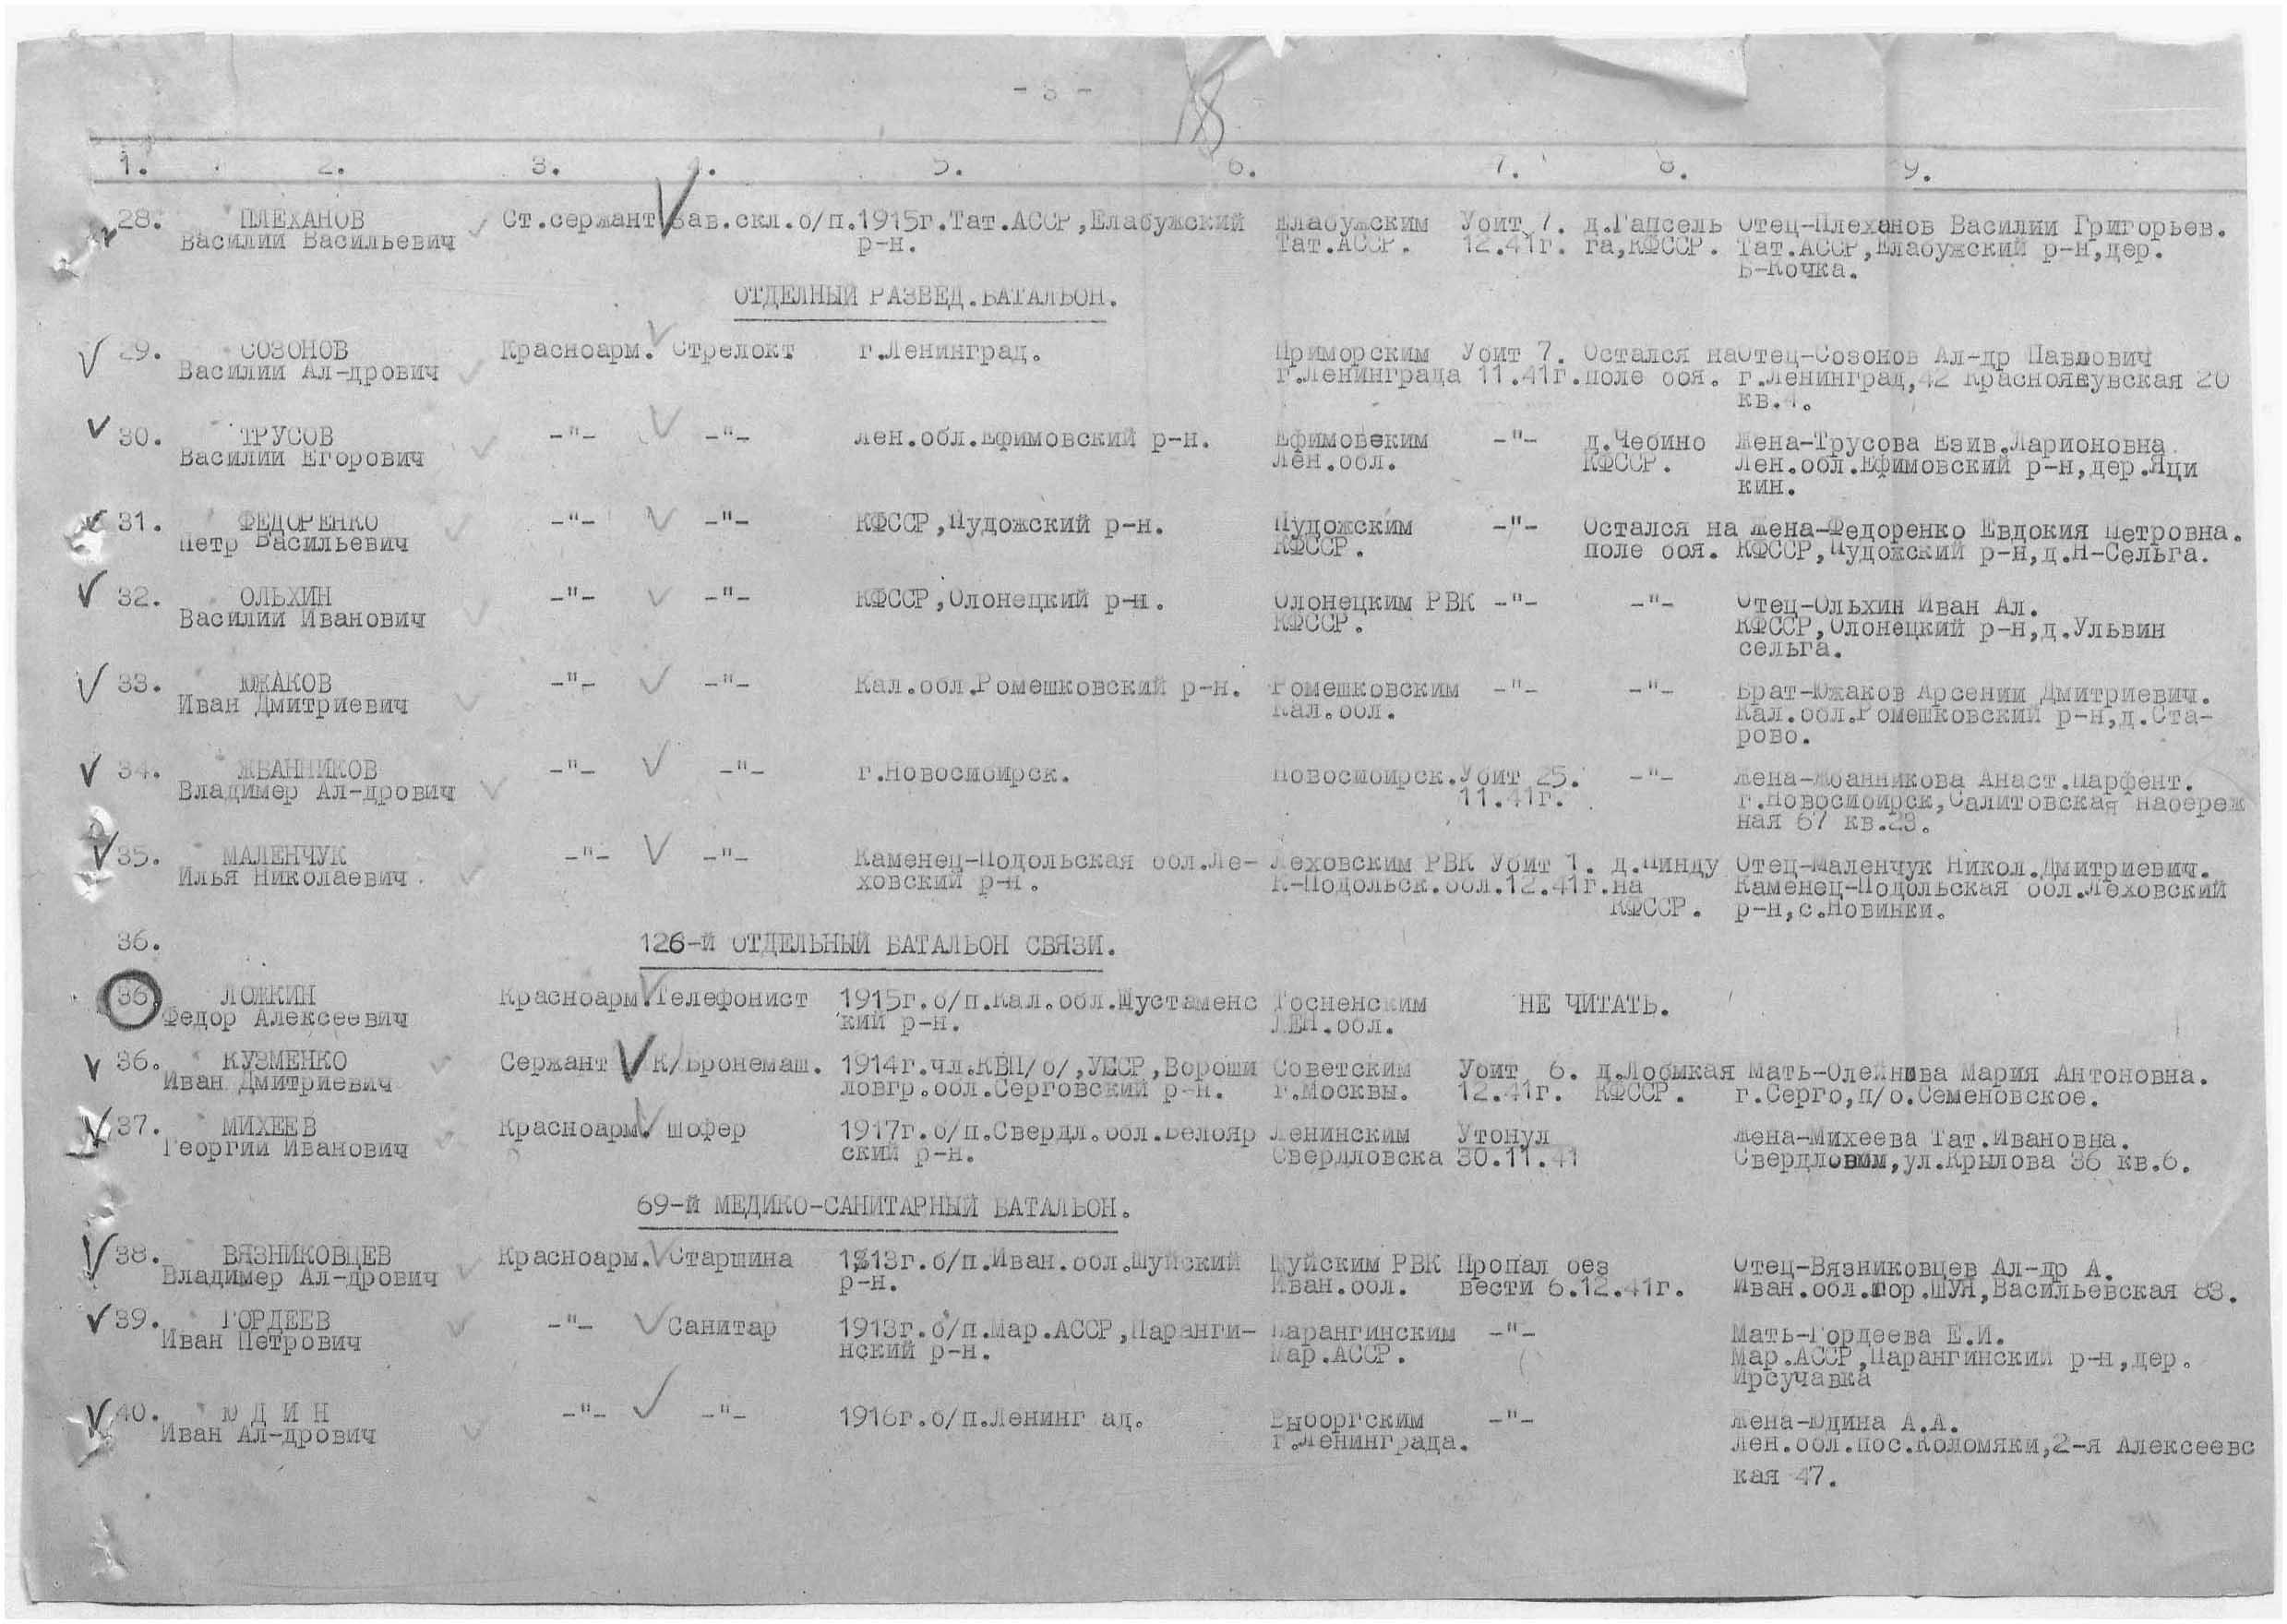 - 3 -
18
1. 2. 3. 4. 5. 6. 7. 8. 9.
28. ПЛЕХАНОВ Ст.сержант Зав.скл.о/п.1915г.Тат.АССР,Елабужский Елабужским Убит 7. д.Гапсель Отец-Плеханов Василий Григорьев.
Василий Васильевич р-н. Тат.АССР. 12.41г. га,КФССР. Тат.АССР,Елабужский р-н,дер.
Б-Кочка.
ОТДЕЛНЫЙ РАЗВЕД.БАТАЛЬОН.
29. СОЗОНОВ Красноарм. Стрелокт г.Ленинград. Приморским Убит 7. Остался на Отец-Созонов Ал-др Павлович
Василий Ал-дрович г.Ленинграда 11.41г. поле боя. г.Ленинград,42 20
кв.4.
30. ТРУСОВ -"- -"- Лен.обл.Ефимовский р-н. Ефимовским -"- д.Чебино Жена-Трусова Езив.Ларионовна
Василий Егорович Лен.обл. КФССР. Лен.обл.Ефимовский р-н,дер.Яци
кин.
31. ФЕДОРЕНКО -"- -"- КФССР,Пудожский р-н. Пудожским -"- Остался на Жена-Федоренко Евдокия Петровна.
Петр Васильевич КФССР. поле боя. КФССР,Пудожский р-н,д.Н-Сельга.
32. ОЛЬХИН -"- -"- КФССР,Олонецкий р-н. Олонецким РВК -"- -"- Отец-Ольхин Иван Ал.
Василий Иванович КФССР. КФССР,Олонецкий р-н,д.Ульвин
сельга.
33. ЮЖАКОВ -"- -"- Кал.обл.Ромешковский р-н. Ромешковским -"- -"- Брат-Южаков Арсений Дмитриевич.
Иван Дмитриевич Кал.обл. Кал.обл.Ромешковский р-н,д.Ста-
рово.
34. ЖВАННИКОВ -"- -"- г.Новосибирск. Новосибирск. Убит 25. -"- Жена-Жванникова Анаст.Парфент.
Владимер Ал-дрович 11.41г. г.Новосибирск,Салитовская набереж
ная 67 кв.23.
35. МАЛЕНЧУК -"- -"- Каменец-Подольская обл.Ле- Леховским РВК Убит 1. д.Пинду Отец-Маленчук Никол.Дмитриевич.
Илья Николаевич. ховский р-н. К-Подольск.обл. 12.41г. на Каменец-Подольская обл.Леховский
КФССР. р-н,с.Новинки.
36. 126-й ОТДЕЛЬНЫЙ БАТАЛЬОН СВЯЗИ.
36 ЛОЖКИН Красноарм. Телефонист 1915г.б/п.Кал.обл.Шустаменс Тосненским НЕ ЧИТАТЬ.
Федор Алексеевич кий р-н. ЛЕН.обл.
36. КУЗМЕНКО Сержант К/Бронемаш. 1914г.чл.КВП/б/,УССР,Вороши Советским Убит 6. д.Лобыкая Мать-Олейнива Мария Антоновна.
Иван Дмитриевич ловгр.обл.Серговский р-н. г.Москвы. 12.41г. КФССР. г.Серго,п/о.Семеновское.
37. МИХЕЕВ Красноарм. шофер 1917г.б/п.Свердл.обл.Белояр Ленинским Утонул Жена-Михеева Тат.Ивановна.
Георгий Иванович ский р-н. Свердловска 30.11.41 ул.Крылова 36 кв.6.
69-й МЕДИКО-САНИТАРНЫЙ БАТАЛЬОН.
38. ВЯЗНИКОВЦЕВ Красноарм. Старшина 1913г.б/п.Иван.обл.Шуйский Шуйским РВК Пропал без Отец-Вязниковцев Ал-др А.
Владимер Ал-дрович р-н. Иван.обл. вести 6.12.41г. Иван.обл.гор.ШУЯ,Васильевская 83.
39. ГОРДЕЕВ -"- Санитар 1913г.б/п.Мар.АССР,Паранги- Парангинским -"- Мать-Гордеева Е.И.
Иван Петрович нский р-н. Мар.АССР. Мар.АССР,Парангинский р-н,дер.
Ирсучавка
40. Ю Д И Н -"- -"- 1916г.б/п.Ленинг ад. Выборгским -"- Жена-Юдина А.А.
Иван Ал-дрович г.Ленинграда. Лен.обл.пос.Коломяки,2-я Алексеевс
кая 47.